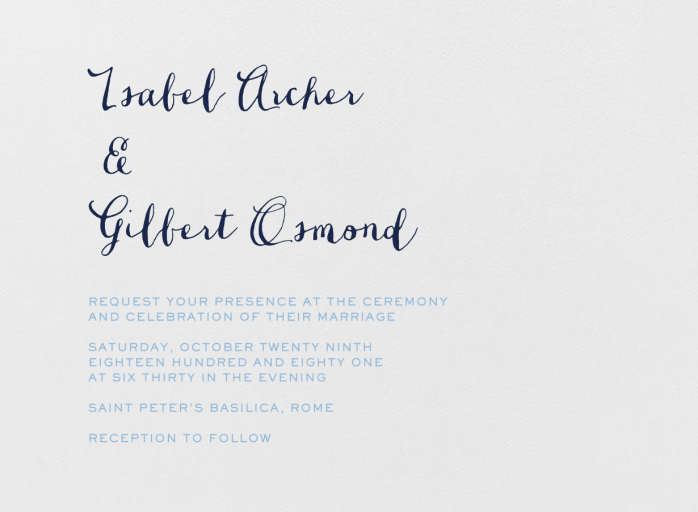 Isabel Archer
&
Gilbert Osmond
REQUEST YOUR PRESENCE AT THE CEREMONY
AND CELEBRATION OF THEIR MARRIAGE
SATURDAY, OCTOBER TWENTY NINTH
EIGHTEEN HUNDRED AND EIGHTY ONE
AT SIX THIRTY IN THE EVENING
SAINT PETER'S BASILICA, ROME
RECEPTION TO FOLLOW